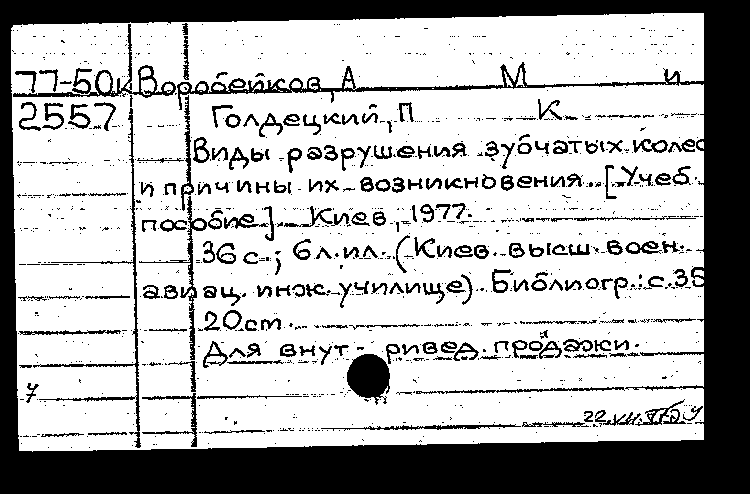 77-50к Воробейков, А М и
2557 Голдецкий, П К
Виды разрушения зубчатых колес
и причины их возникновения. [Учеб.
пособие]. Киев, 1977.
36 с.; 6л.ил. (Киев. высш. воен.
авиац. инж. училище). Библиогр.: с.35
20см.
Для внут- ривед. продажи.
7
22.VII.